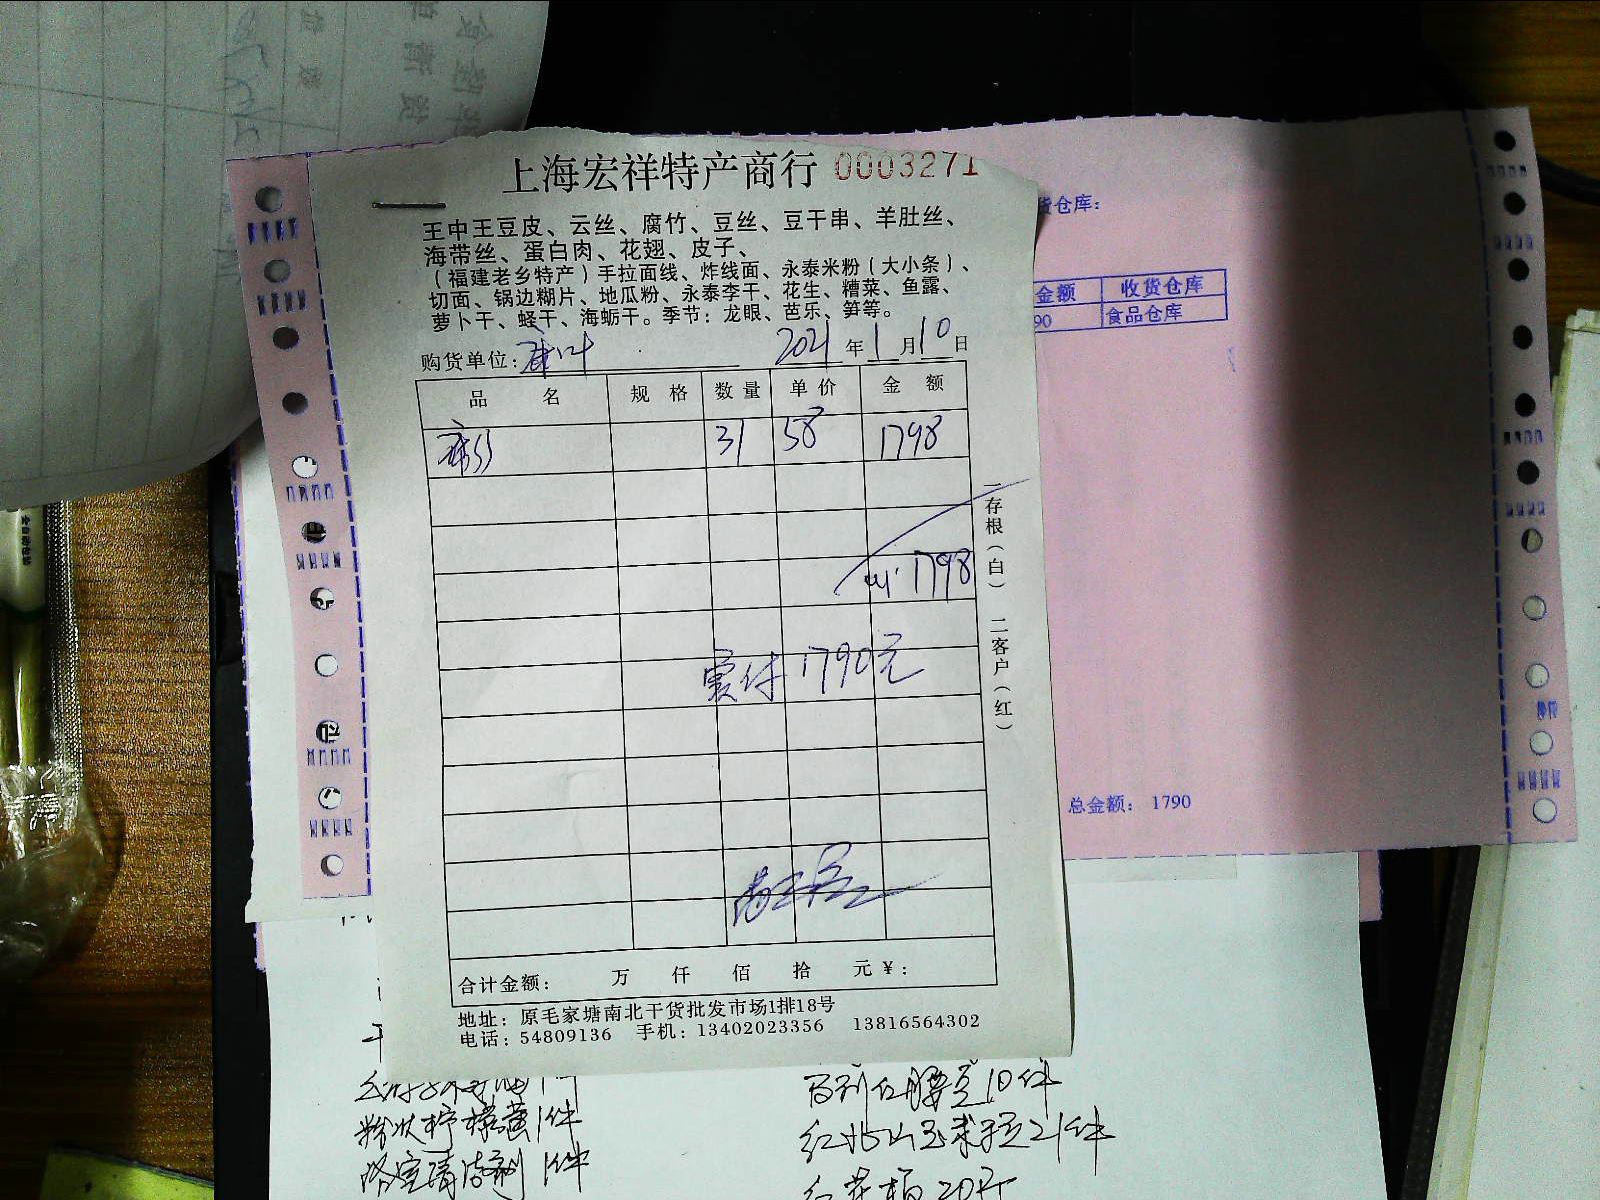 上海宏祥特产商行 0003271
王中王豆皮、云丝、腐竹、豆丝、豆干串、羊肚丝、
海带丝、蛋白肉、花翅、皮子、
（福建老乡特产）手拉面线、炸线面、永泰米粉（大小条）、
切面、锅边糊片、地瓜粉、永泰李干、花生、糟菜、鱼露、
萝卜干、蛏干、海蛎干。季节：龙眼、芭乐、笋等。
购货单位： 2021 年 1 月 10 日
品 名 规 格 数 量 单 价 金 额
31 58 1798
1798
实付1790元
一存根（白） 二客户（红）
合计金额： 万 仟 佰 拾 元￥：
地址：原毛家塘南北干货批发市场1排18号
电话：54809136 手机：13402023356 13816564302
货仓库：
金额 收货仓库
90 食品仓库
总金额： 1790
粉状柠檬黄1件
洁剂 1件
红腰豆10件
玉米粒21件
20斤